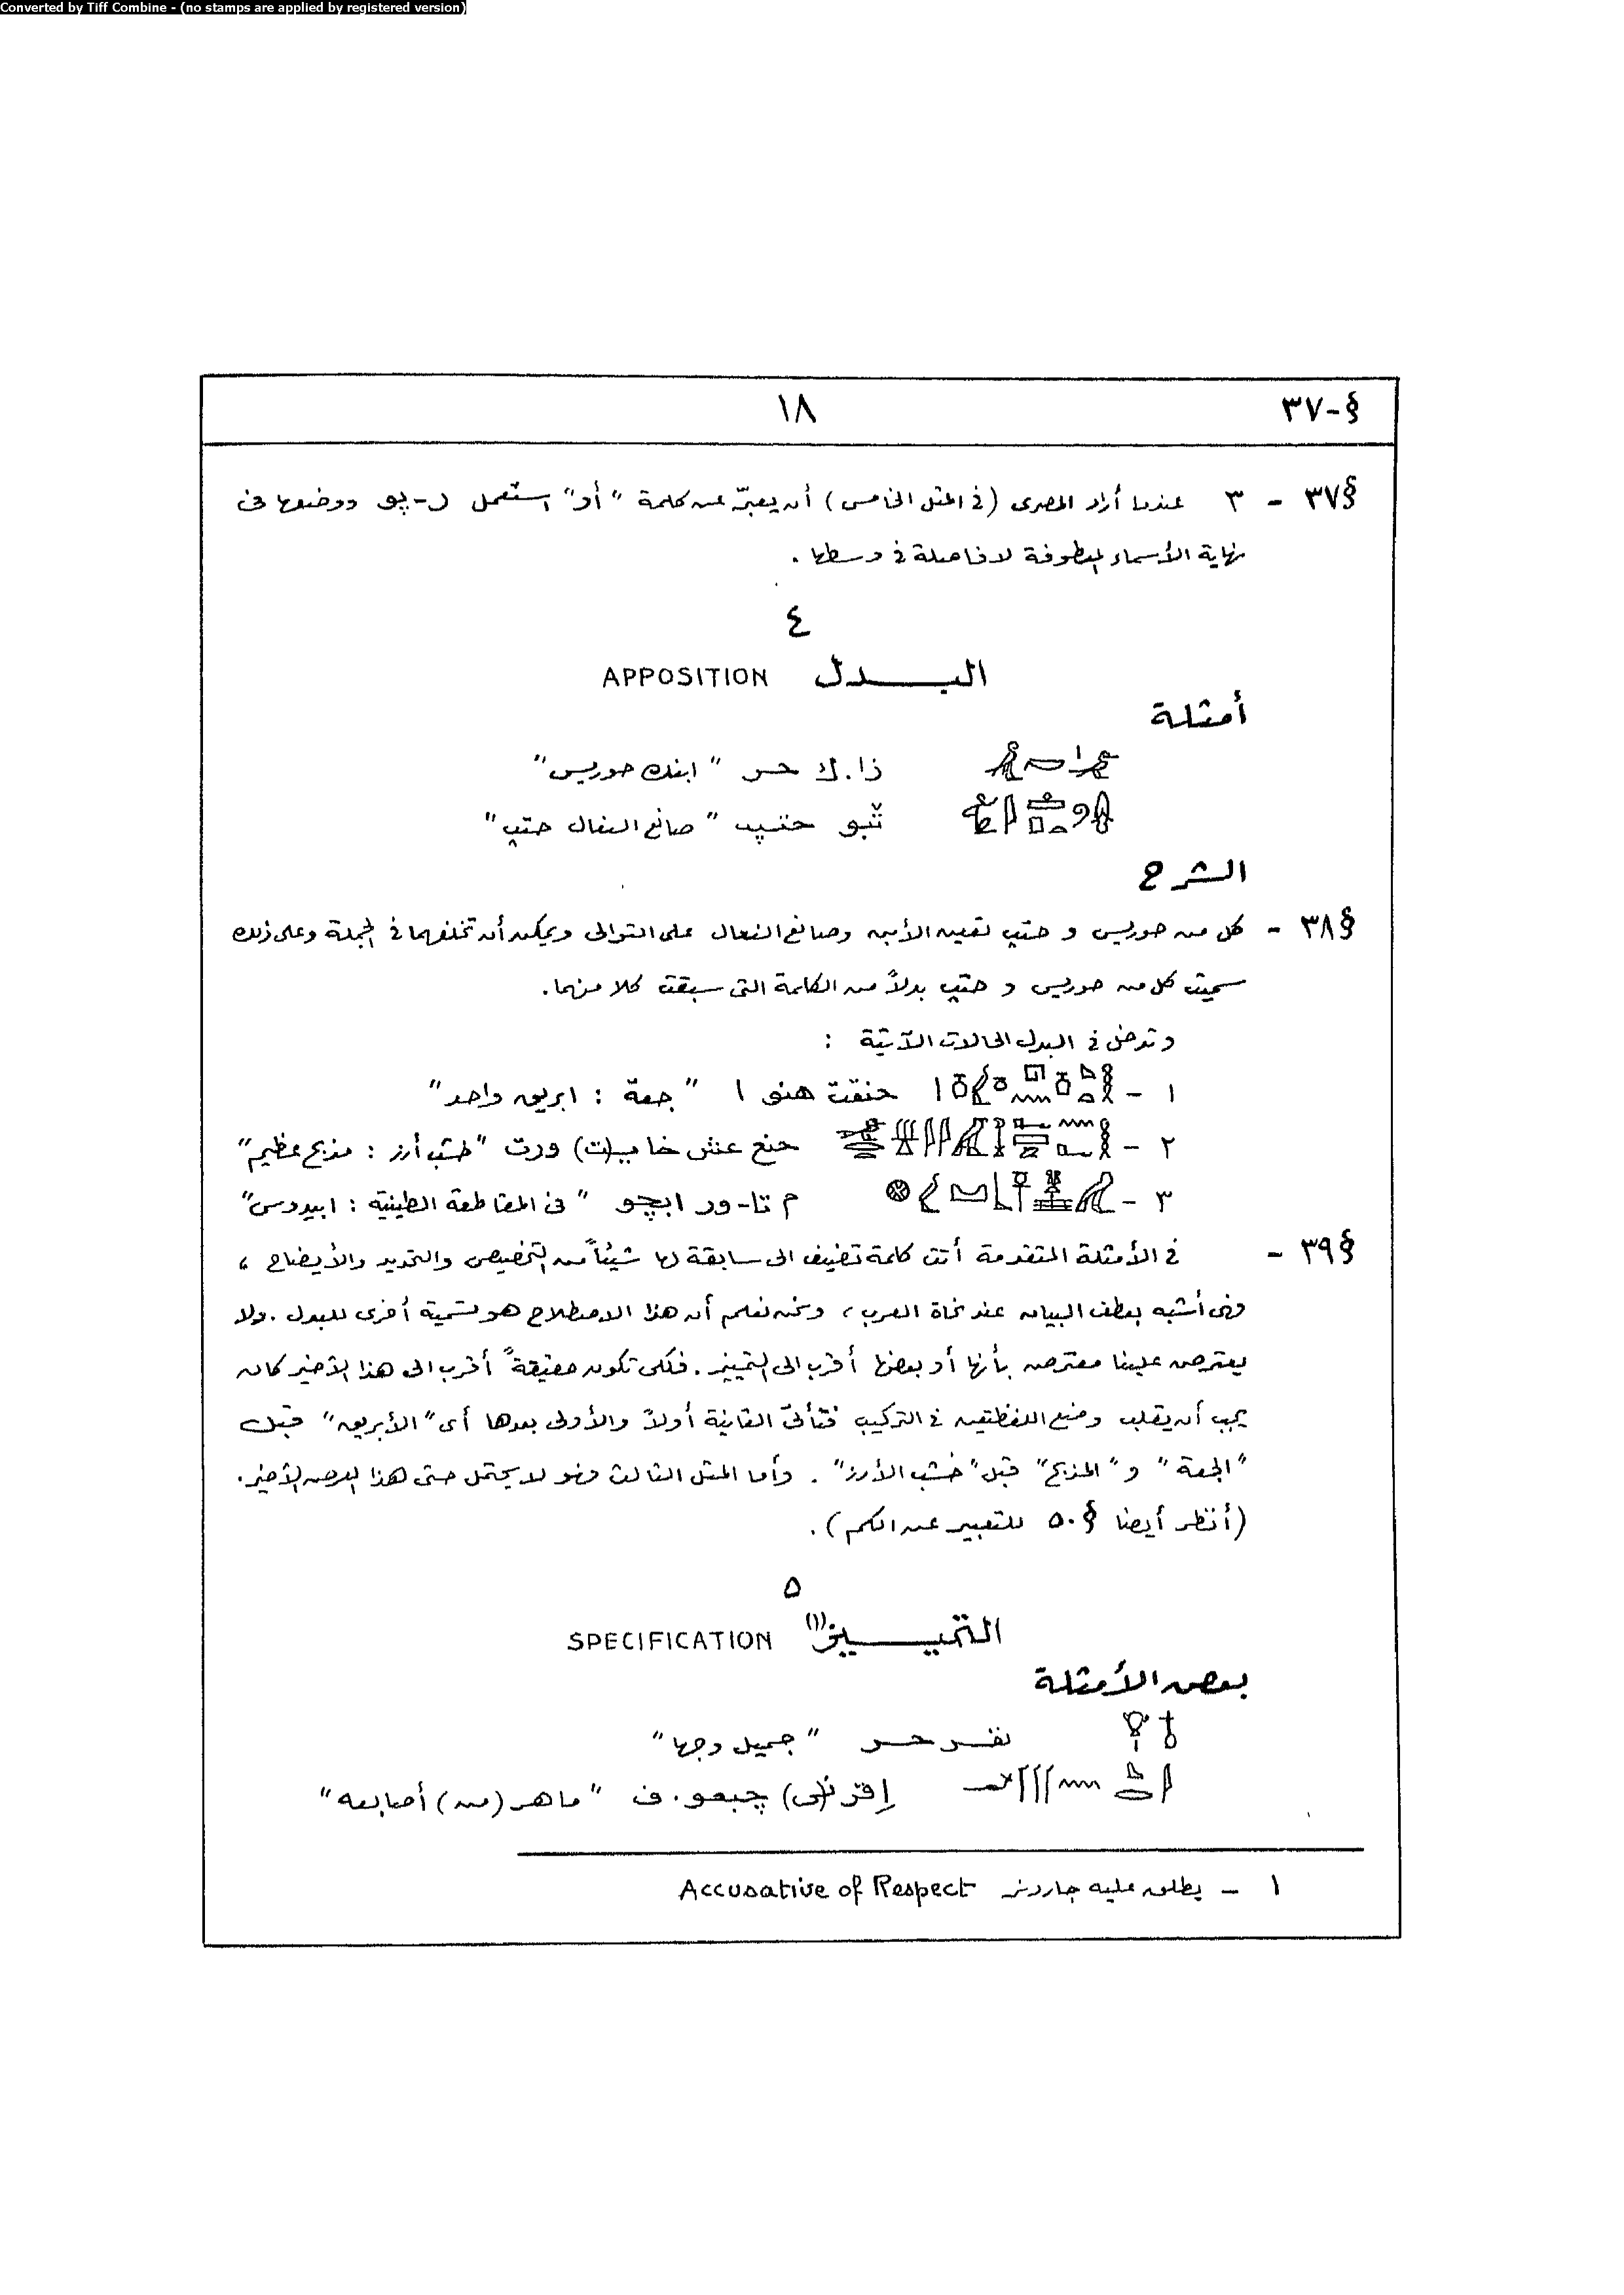 Converted by Tiff Combine - (no stamps are applied by registered version)
§-٣٧ ١٨
§٣٧ - ٣ عندما أراد المصرى (فى المثل الخامس) أن يعبّر عن كلمة "أو" استعمل ر-پو ووضعها فى
نهاية الأسماء المعطوفة لا فاصلة فى وسطها .
٤
البدل APPOSITION
أمثلة
ذا.ك حر "ابنك حوريس"
ثبو حتپ "صانع النعال حتپ"
الشرح
§٣٨ - كل من حوريس و حتپ تعين الأبن وصانع النعال على التوالى ويمكن أن تخلفهما فى الجملة وعلى ذلك
سميت كل من حوريس و حتپ بدلاً من الكلمة التى سبقت كلا منهما.
وتدخل فى البدل الحالات الآتية :
١ - حنقت هنو ١ "جعة : ابريق واحد"
٢ - حنع عش خاب(ت) ورت "خشب أرز : مذبح عظيم"
٣ - م تا-ور ابچو "فى المقاطعة الطينية : ابيدوس"
§٣٩ - فى الأمثلة المتقدمة أتت كلمة تضيف الى سابقة لها شيئاً من التخصيص والتحديد والأيضاح ،
وهى أشبه بعطف البيان عند نحاة العرب ، ونحن نعلم أن هذا الاصطلاح هو تسمية أخرى للبدل . ولا
يعترض علينا معترض بأنها أو بعضها أقرب الى التمييز . فلكى تكون حقيقةً أقرب الى هذا الأخير كان
يجب أن يقلب وضع اللفظتين فى التركيب فتأتى الثانية أولاً والأولى بعدها أى "الأبريق" قبل
"الجعة" و "المذبح" قبل "خشب الأرز" . وأما المثل الثالث فهو لا يحتمل حتى هذا الفرض الأخير .
(أنظر أيضا §٥٠ للتعبير عن الكم) .
٥
التمييز(١) SPECIFICATION
بعض الأمثلة
نفر حر "جميل وجها"
إقر ن(ى) چبعو.ف "ماهر (من) أصابعه"
١ - يطلق عليه جاردنر Accusative of Respect